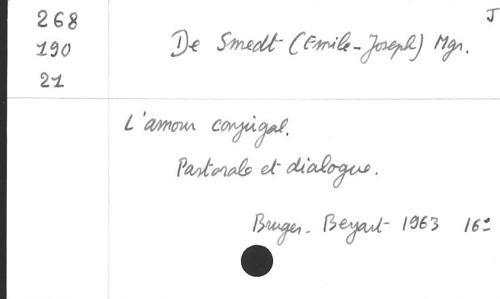 J
268
190
21
De Smedt (Emile-Joseph) Mgr.
L'amour conjugal.
Pastorale et dialogue.
Bruges - Beyaert 1963 16º